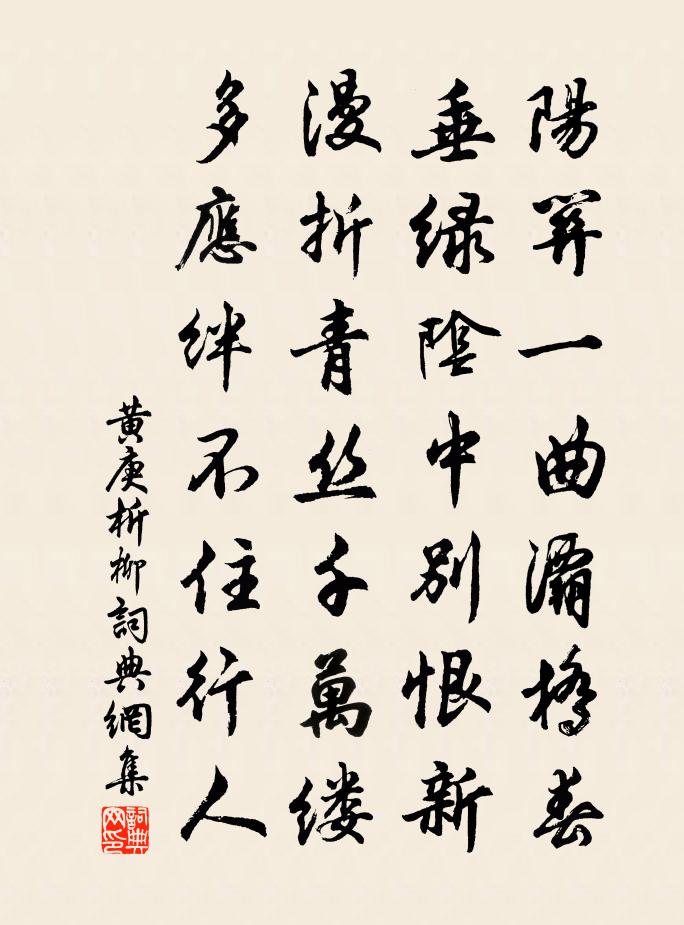 陽關一曲灞橋春
垂緑陰中別恨新
漫折青丝千萬縷
多應絆不住行人
黄庚折柳詞典網集
詞典网印